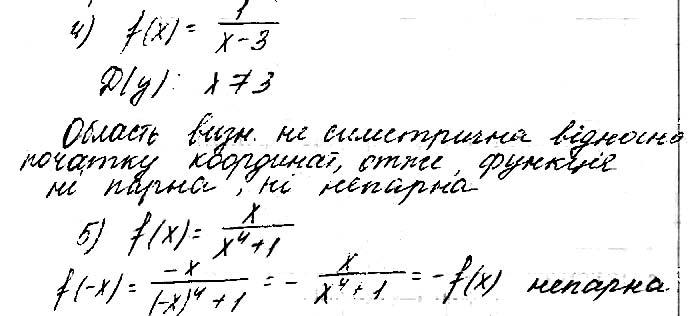 4) f(x) = 1/(x-3)
D(y): x ≠ 3
Область визн. не симетрична відносно
початку координат, отже, функція
ні парна, ні непарна
5) f(x) = x/(x⁴+1)
f(-x) = -x/((-x)⁴+1) = - x/(x⁴+1) = -f(x) непарна